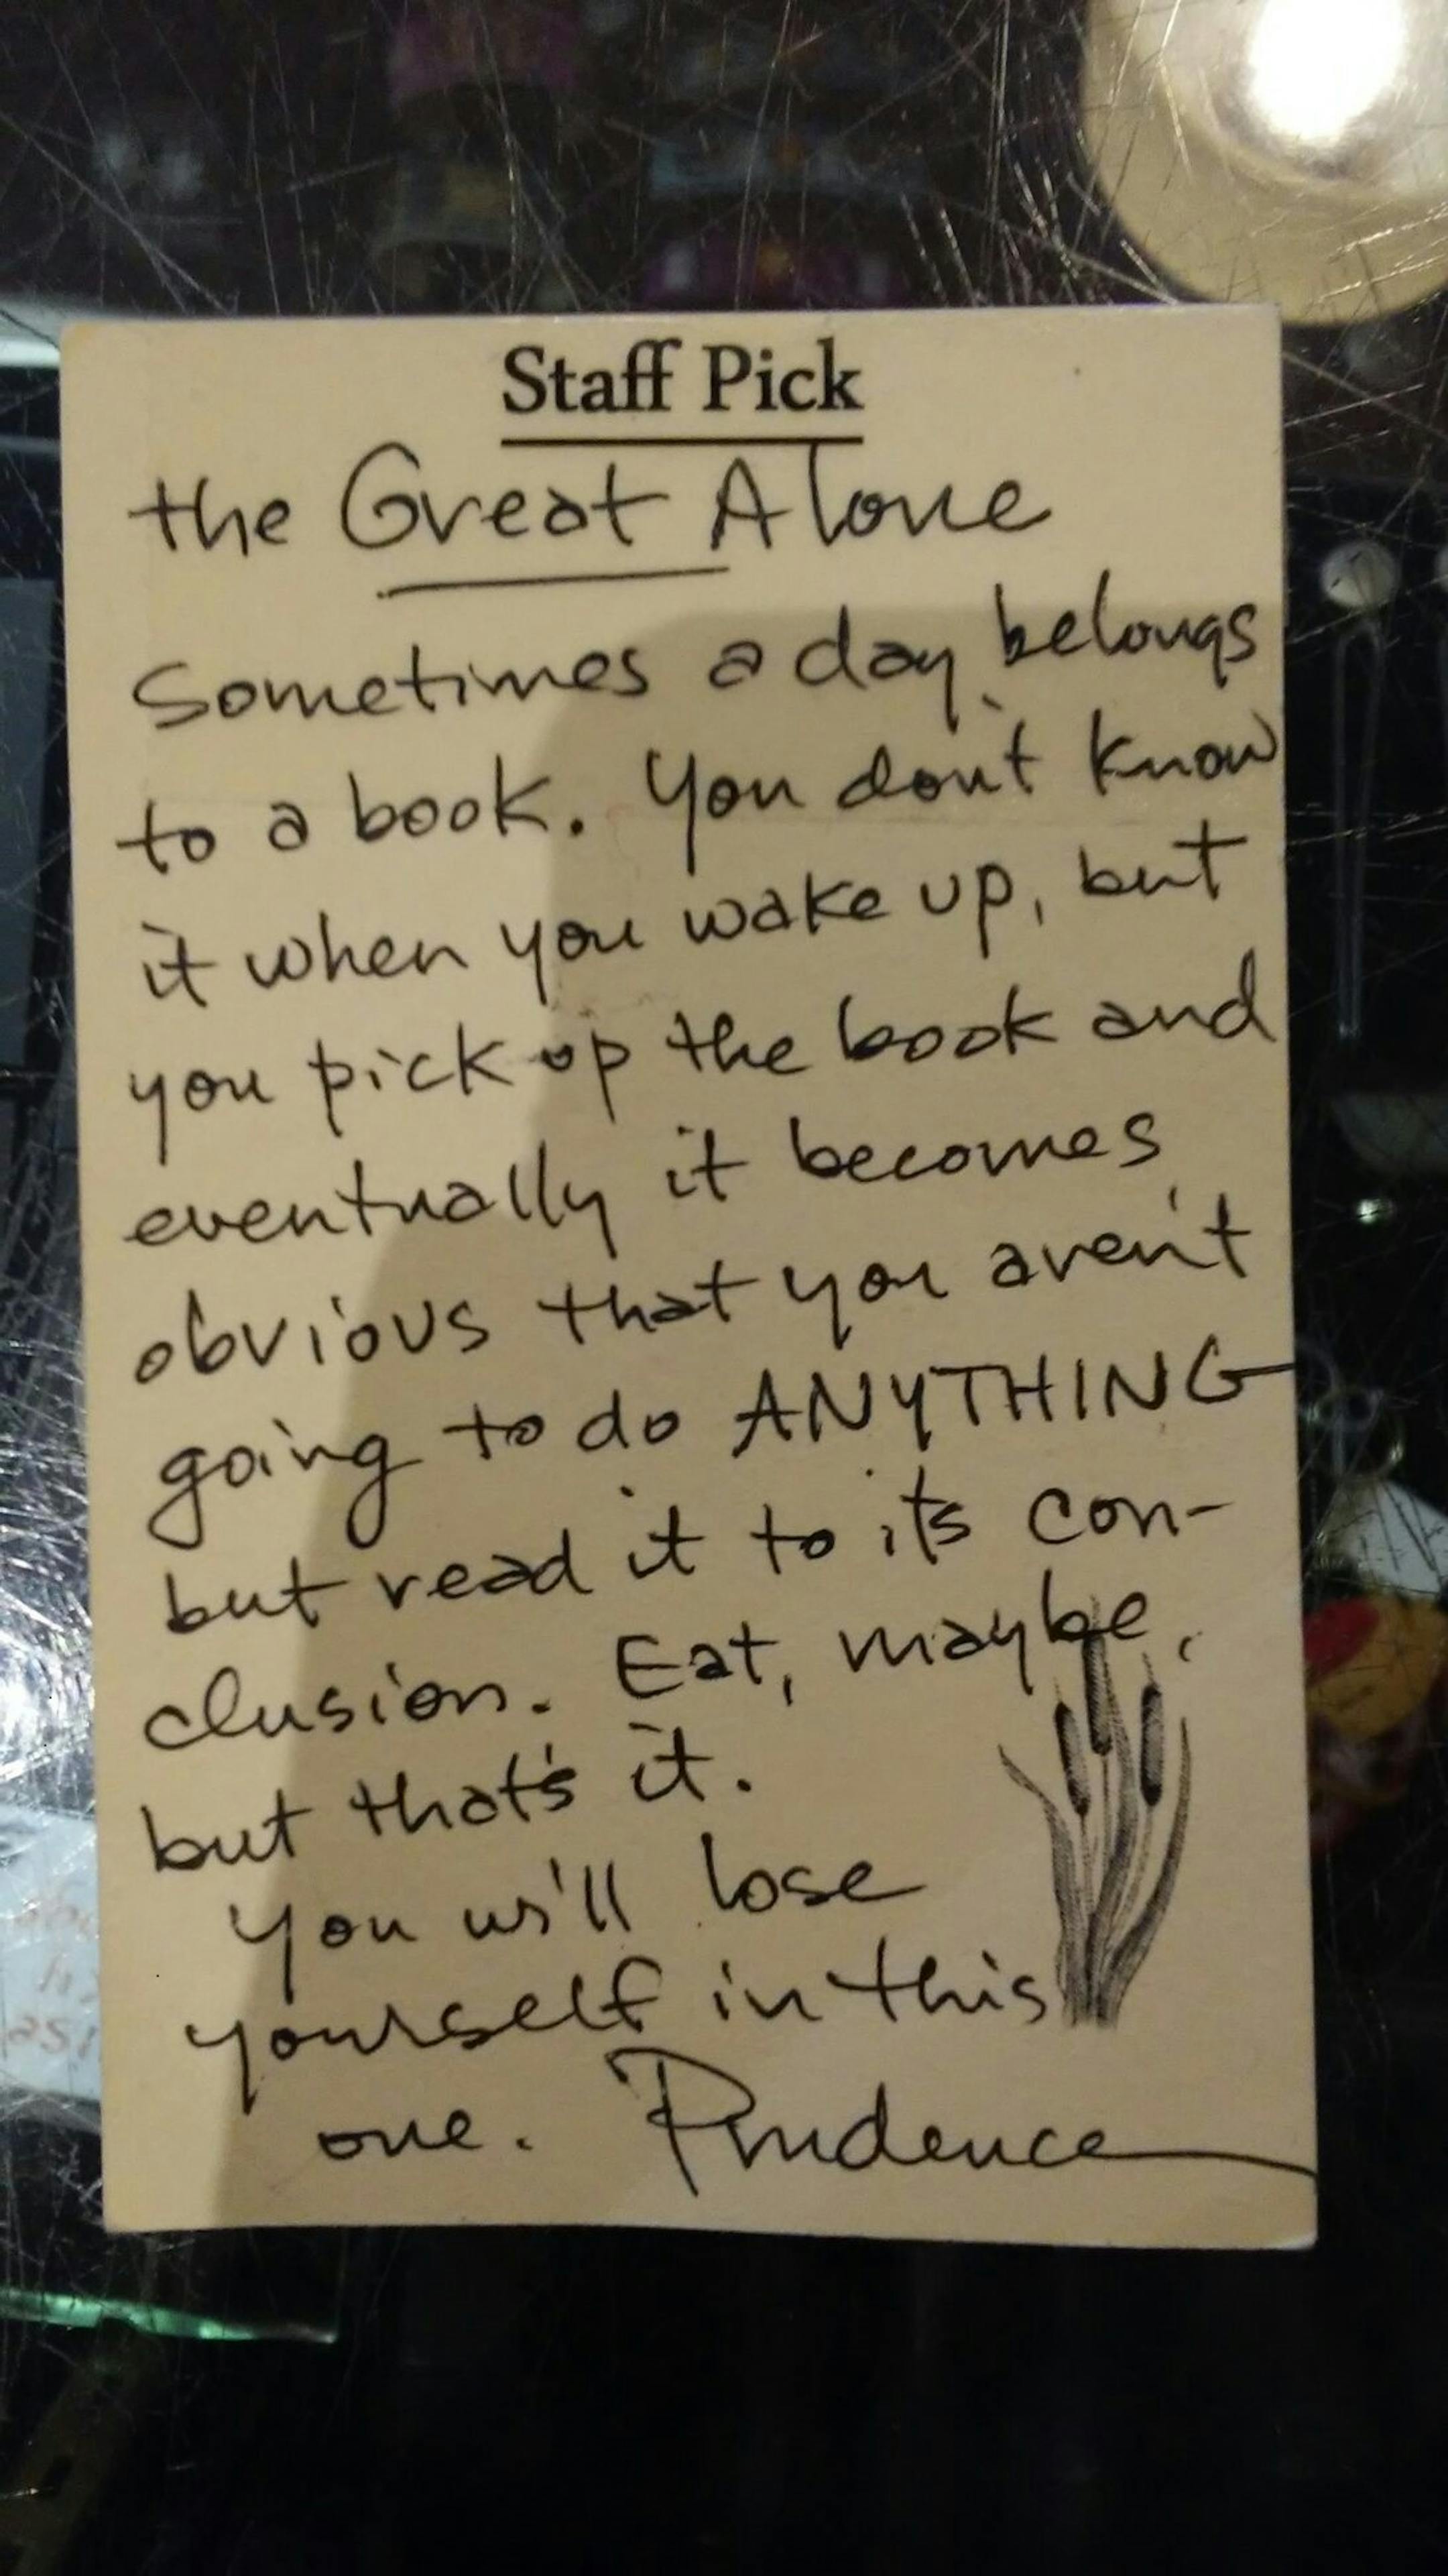 Staff Pick
the Great Alone
Sometimes a day belongs
to a book. You don't know
it when you wake up, but
you pick up the book and
eventually it becomes
obvious that you aren't
going to do ANYTHING
but read it to it's con-
clusion. Eat, maybe,
but that's it.
You will lose
yourself in this
one. Prudence